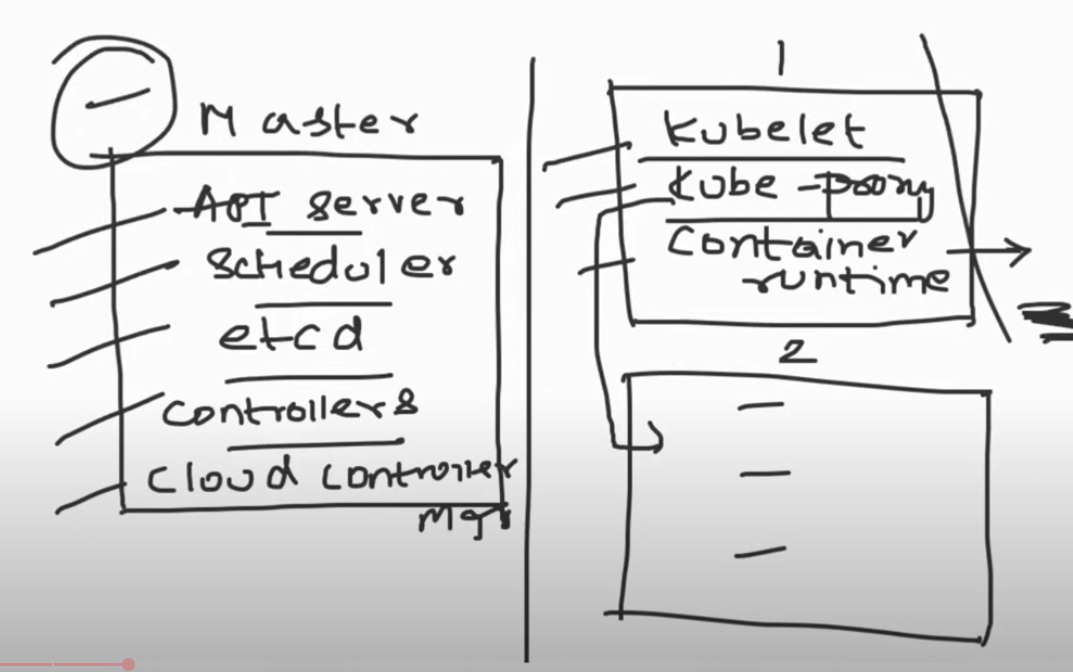 Master
API server
Scheduler
etcd
Controllers
Cloud Controller
Mgr
1
Kubelet
Kube-proxy
Container
runtime
2